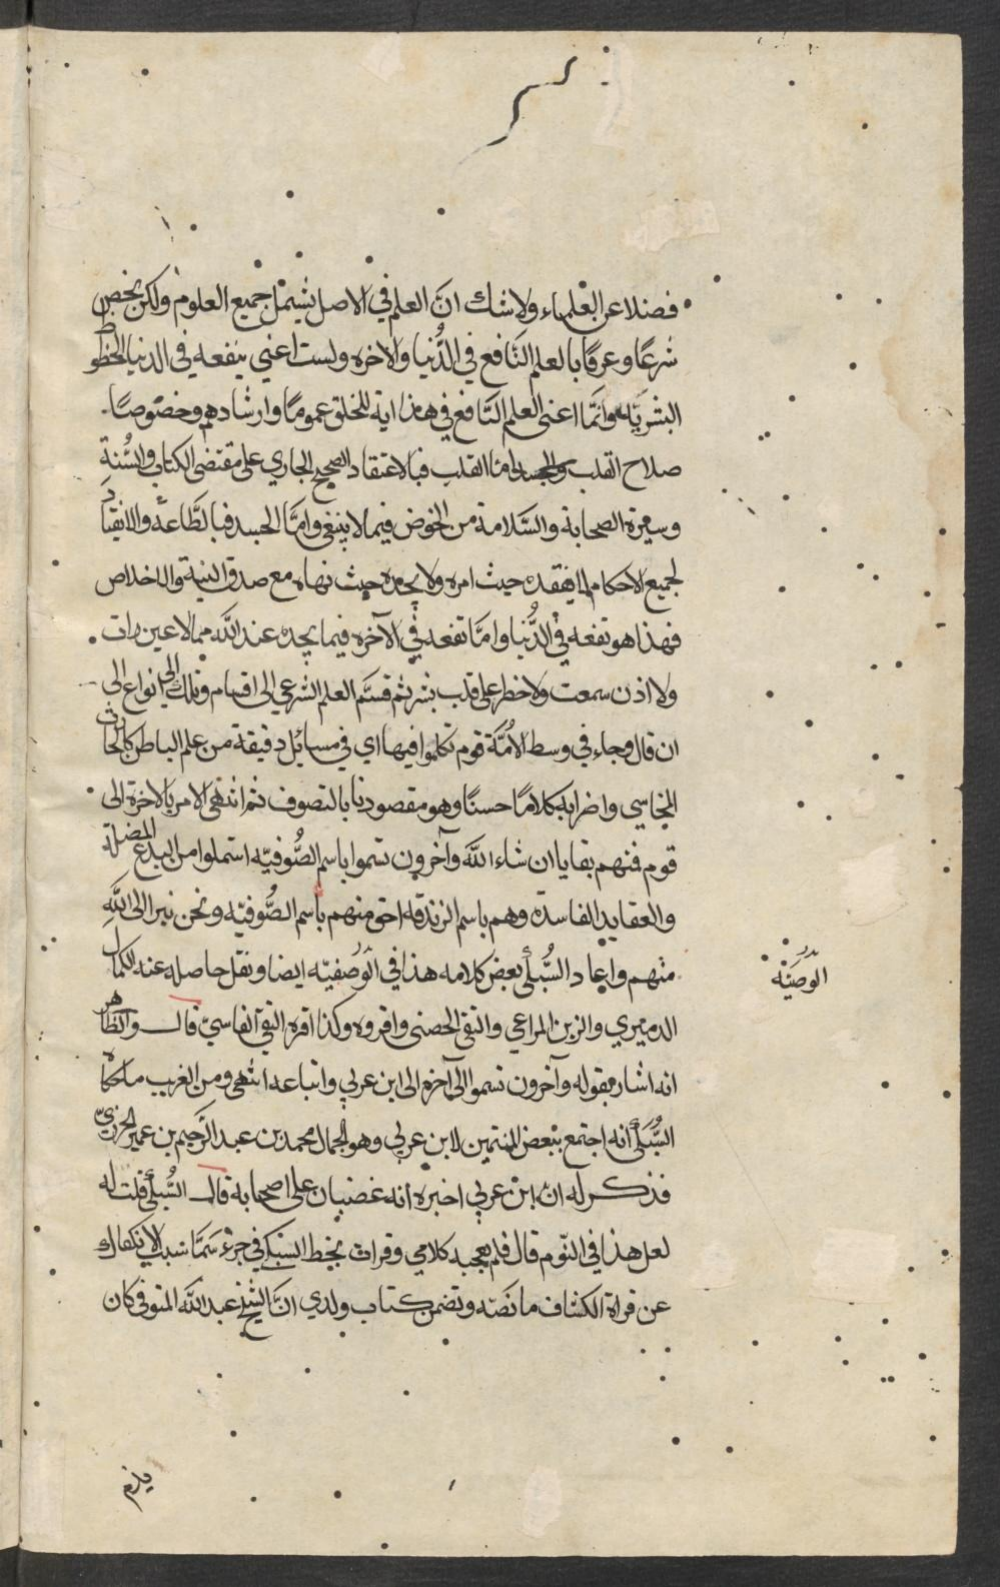 فضلا عن العلماء ولا شك ان العلم في الاصل يشمل جميع العلوم ولكن يخص
شرعًا وعرفًا بالعلم النافع في الدُّنيا والاخره ولست اعني ينفعه في الدنيا الحظو
البشريّه وانّما اعنى العلم النّافع في هذا اية للخلق عمومًا وارشادهم وخصوصًا
صلاح القلب والجسد امّا القلب فبالاعتقاد الصحيح الجاري على مقتضى الكتاب والسُّنة
وسيرة الصحابة والسّلامة من الخوض فيما لا ينبغي وامّا الجسد فبالطَّاعة والانقياد
لجميع الاحكام يفقده حيث امره ولا يجده حيث نهاه مع صدق النية والاخلاص
فهذا هو نفعه في الدُّنيا وامّا نفعه في الآخره فيما يجده عند اللَّه مما لا عين رات
ولا اذن سمعت ولا خطر على قلب بشر ثم قسّم العلم الشرعي الى اقسام وتلك الى انواع الى
ان قال وجاء في وسط الأمّة قوم تكلموا فيها اي في مسائل دقيقة من علم الباطن كالحارث
المحاسبي واضرابه كلامًا حسنًا وهو مقصودنا بالتصوف ثم انتهى الامر بالاخرة الى
قوم فمنهم بقايا ان شاء اللَّه وآخرون تسموا باسم الصُّوفيّه استملوا من البدع المضلة
والعقايد الفاسدة وهم باسم الزندقة احق منهم باسم الصُّوفيّه ونحن نبرا الى اللَّه
منهم واعاد السُّبكي بعض كلامه هذا في الوصفيّه ايضا ونقل حاصله عنه الكمال
الوصيّة
الدميري والزين المراغي والتقى الحصنى واقروه وكذا اقره التقي الفاسيّ قال والظاهر
انه اشار بقوله وآخرون تسموا الى آخره الى ابن عربي واتباعه انتهى ومن الغريب ما حكاه
السُّبكي انه اجتمع ببعض المنتمين لابن عربي وهو الجمال محمد بن عبد الرّحيم بن عمير الجزريّ
فذكر له ان ابن عربي اخبره انه غضبان على اصحابة قال السُّبكي قلت له
لعل هذا في النّوم قال فلم يعجبه كلامي وقرات بخط السبكي في جزء سمّا سبب الانكفاف
عن قراة الكشاف ما نصّه وتضمن كتاب ولدي انّ الشيخ عبد اللَّه المتوفى كان
يلزم